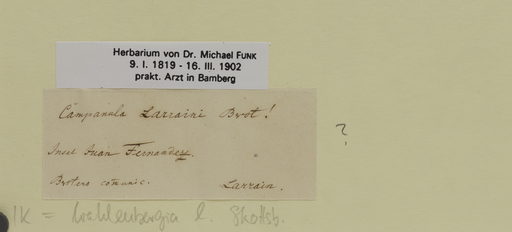 Herbarium von Dr. Michael FUNK
9. I. 1819 - 16. III. 1902
prakt. Arzt in Bamberg
Campanula Larraini Brot!
Insel Juan Fernandez.
Brotero comunic. Larrain.
?
IK = Wahlenbergia l. Skottsb.